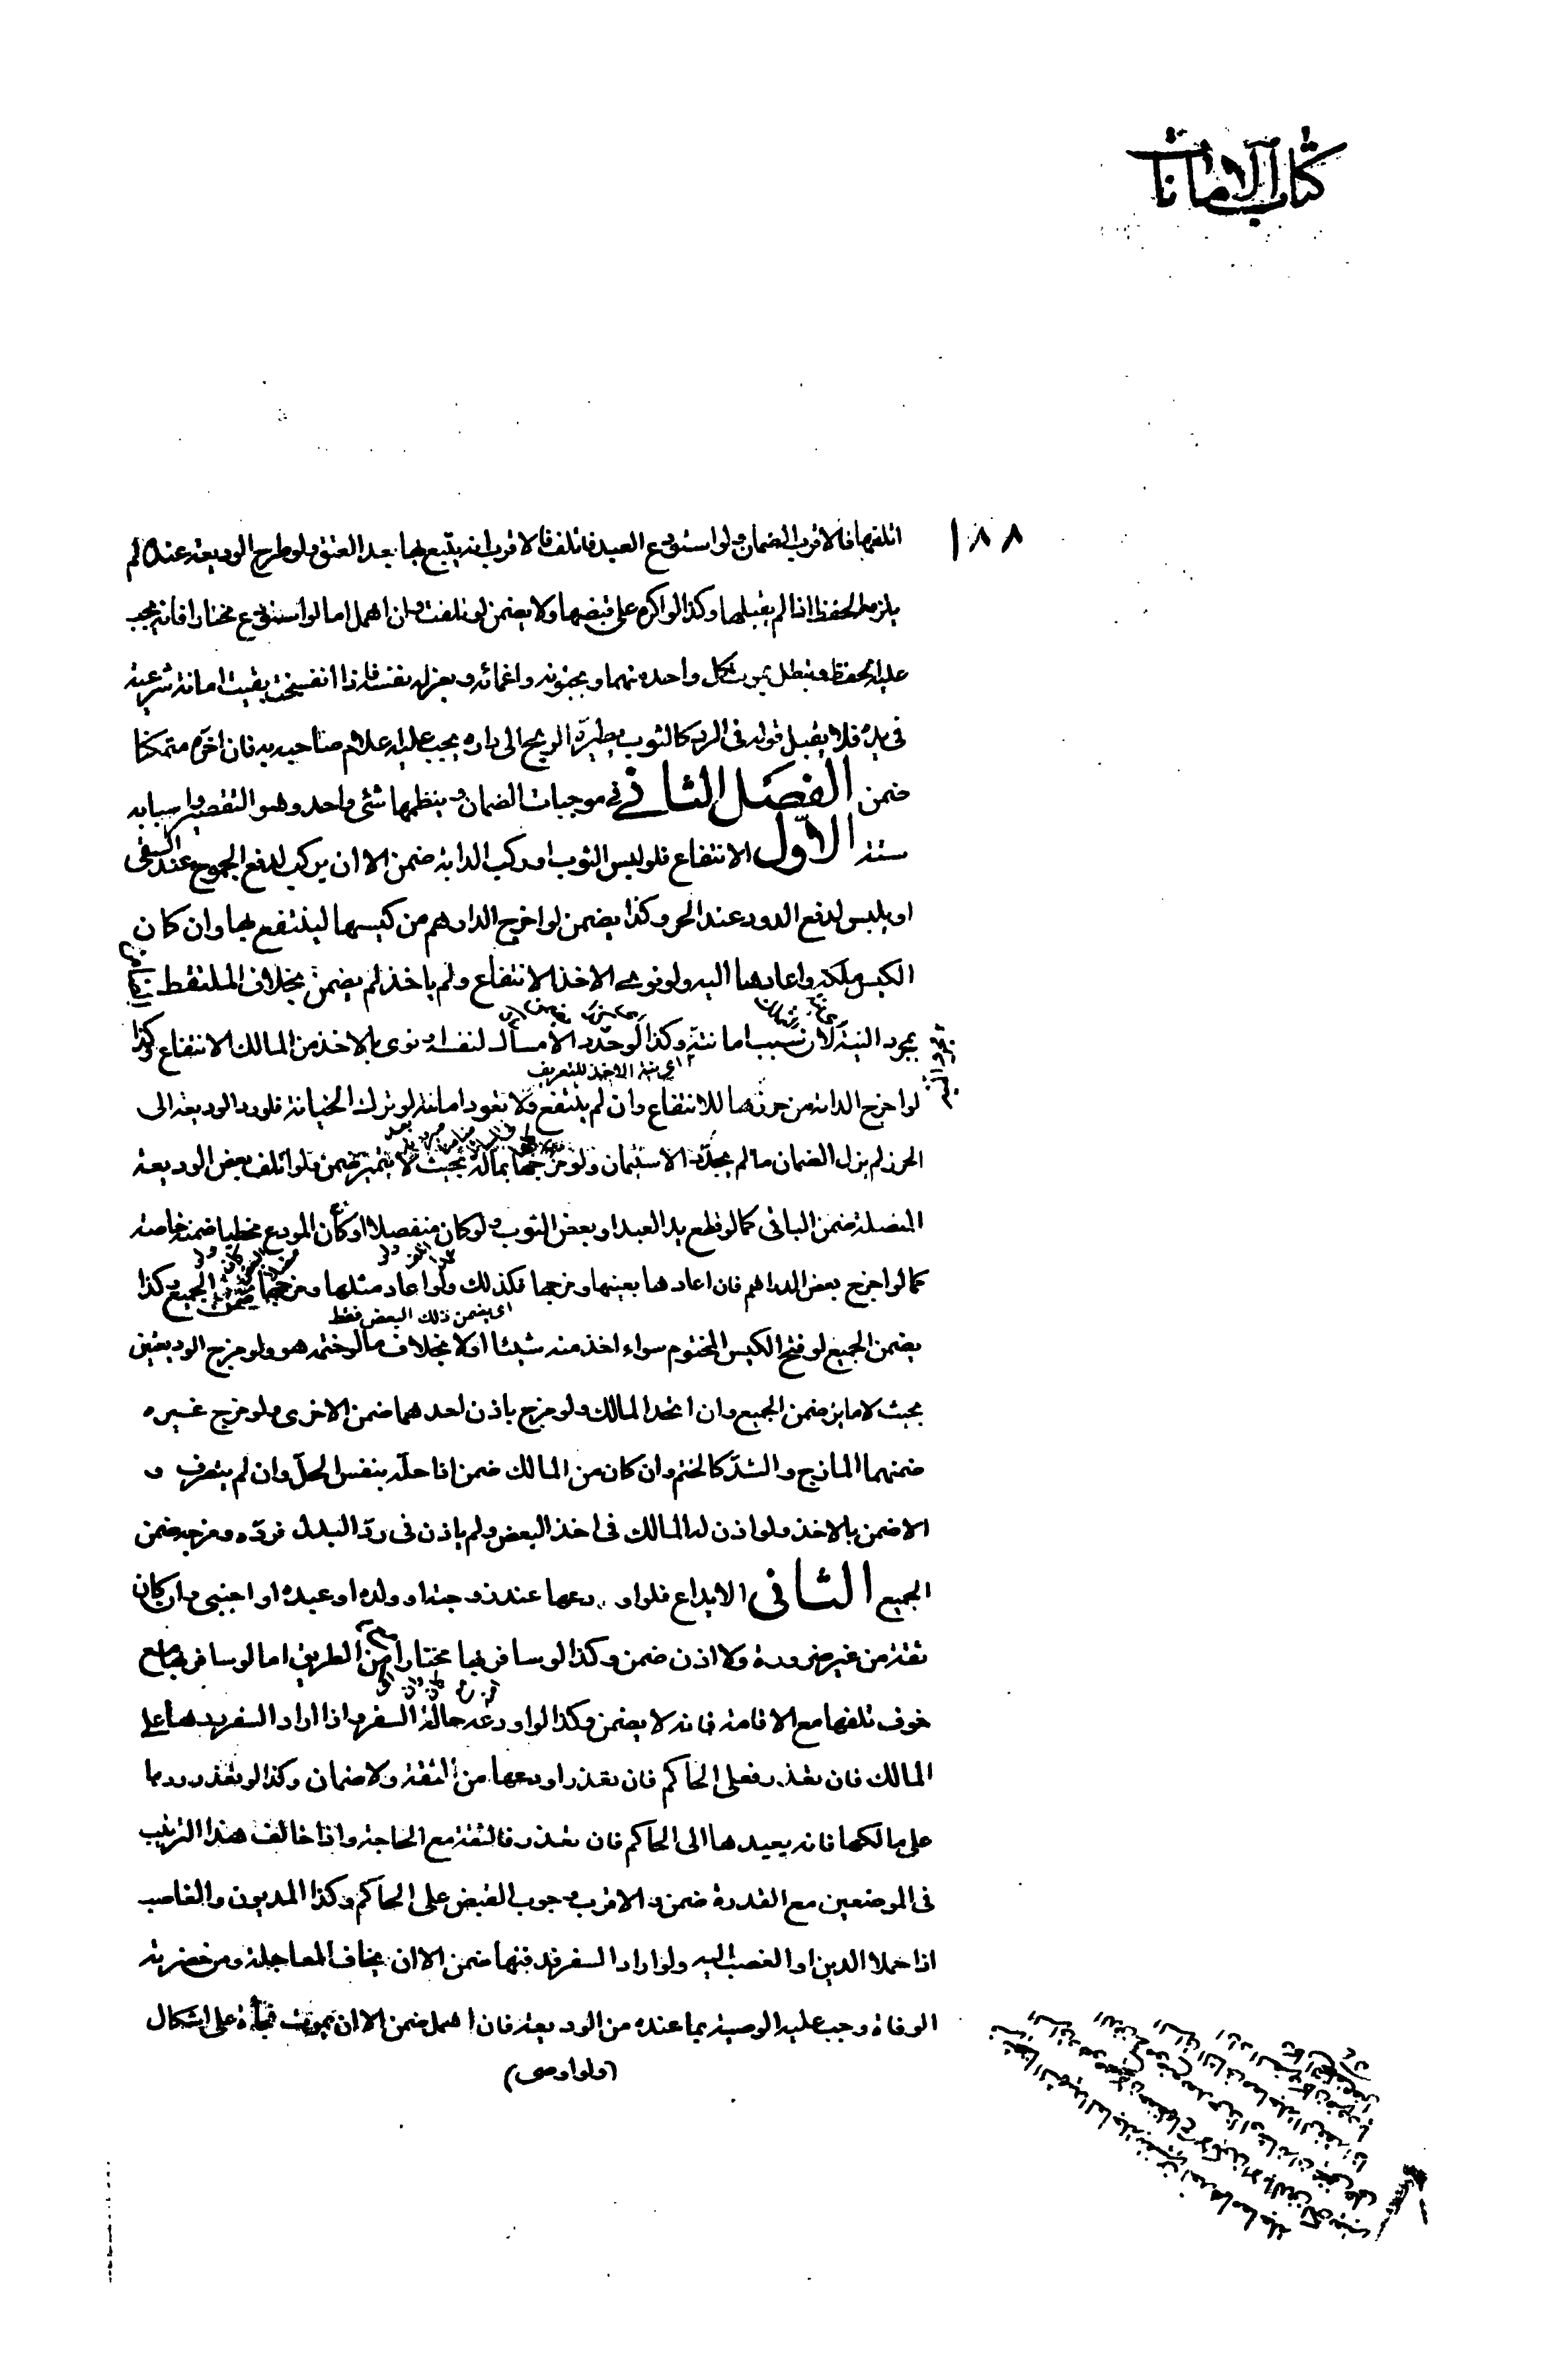 كتاب الامانات
١٨٨
اتلفها فالاقرب الضمان ولو استودع العبد فاتلف فالاقرب انه يتبع بها بعد العتق ولو طرح الوديعة عنده لم
يلزمه الحفظ اذا لم يقبلها وكذا لو اكره على قبضها ولا يضمن لو تلفت وان اهمل اما لو استودع مختارا فانه يجب
عليه الحفظ وتبطل بموت كل واحد منهما وبجنونه واغمائه وبعزله نفسه فاذا انفسخت بقيت امانة شرعية
في يده فلا يقبل قوله في الرد كالثوب يطيره الريح الى داره يجب عليه اعلام صاحبه به فان اخر متمكنا
ضمن الفصل الثاني في موجبات الضمان وينظمها شئ واحد وهو التقصير واسبابه
ستة الاول الانتفاع فلو لبس الثوب او ركب الدابة ضمن الا ان يركب لدفع الجموح عند السقي
او يلبس لدفع الدود عند الحر وكذا يضمن لو اخرج الدراهم من كيسها لينتفع بها وان كان
الكيس ملكه واعادها اليه ولو نوى الاخذ للانتفاع ولم ياخذ لم يضمن بخلاف الملتقط
بمجرد النية لان سبب امانته وكذا لو جدد الامساك لنفسه او نوى بالاخذ من المالك الانتفاع وكذا
اي بنية الاخذ للتعريف
لو اخرج الدابة من حرزها للانتفاع وان لم ينتفع ولا تعود امانة لو ترك الخيانة فلو رد الوديعة الى
الحرز لم يزل الضمان ما لم يجدد الاستيمان ولو مزجها بماله بحيث لا يتميز ضمن ولو اتلف بعض الوديعة
المتصلة ضمن الباقي كما لو قطع يد العبد او بعض الثوب ولو كان منفصلا او كان المودع مخطيا ضمنه خاصة
كما لو اخرج بعض الدراهم فان اعادها بعينها ومزجها فكذلك ولو اعاد مثلها ومزجها ضمن الجميع وكذا
اي يضمن ذلك البعض فقط
يضمن الجميع لو فتح الكيس المختوم سواء اخذ منه شيئا او لا بخلاف ما لو ختمه هو ولو مزج الوديعتين
بحيث لا مايز ضمن الجميع وان اتحد المالك ولو مزج باذن احدهما ضمن الاخرى ولو مزج غيره
ضمنهما المازج والشد كالختم وان كان من المالك ضمن اذا حله بنفس الحل وان لم يتصرف و
الا ضمن بالاخذ ولو اذن له المالك في اخذ البعض ولم ياذن في رد البدل فرده ومزجه ضمن
الجميع الثاني الايداع فلو اودعها عند زوجته او ولده او عبده او اجنبي وان كان
ثقة من غير ضرورة ولا اذن ضمن وكذا لو سافر بها مختارا مع امن الطريق اما لو سافر بها مع
خوف تلفها مع الاقامة فانه لا يضمن وكذا لو اودعه حالة السفر واذا اراد السفر ردها على
المالك فان تعذر فعلى الحاكم فان تعذر اودعها من الثقة ولا ضمان وكذا لو تعذر ردها
على مالكها فانه يعيدها الى الحاكم فان تعذر فالثقة مع الحاجة واذا خالف هذا الترتيب
في الموضعين مع القدرة ضمن والاقرب وجوب القبض على الحاكم وكذا المديون والغاصب
اذا حملا الدين او الغصب اليه ولو اراد السفر فدفنها ضمن الا ان يخاف المعاجلة ومن حضرته
الوفاة وجب عليه الوصية بما عنده من الوديعة فان اهمل ضمن الا ان يموت فجأة على اشكال
(ولو اوصى)